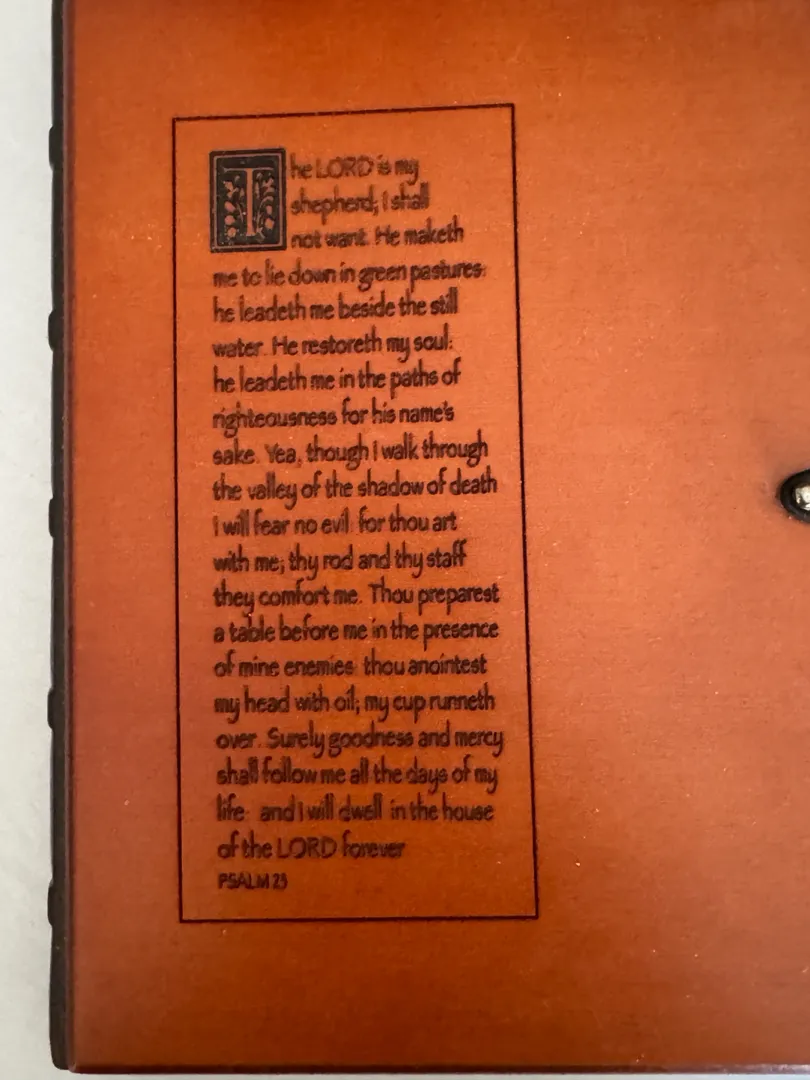 The LORD is my
shepherd; I shall
not want. He maketh
me to lie down in green pastures:
he leadeth me beside the still
water. He restoreth my soul:
he leadeth me in the paths of
righteousness for his name's
sake. Yea, though I walk through
the valley of the shadow of death
I will fear no evil: for thou art
with me; thy rod and thy staff
they comfort me. Thou preparest
a table before me in the presence
of mine enemies: thou anointest
my head with oil; my cup runneth
over. Surely goodness and mercy
shall follow me all the days of my
life: and I will dwell in the house
of the LORD forever
PSALM 23